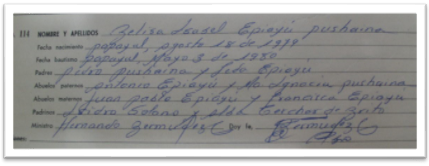 III NOMBRE Y APELLIDOS Zelisa Isabel Epiayú pushaina
Fecha nacimiento papayal, agosto 18 de 1979
Fecha bautismo papayal, Mayo 3 de 1980
Padres pedro pushaina y Epiayú
Abuelos paternos Antonio Epiayú y pushaina
Abuelos maternos Juan pablo Epiayú y Francisca Epiayú
Padrinos Isidro Solano y de Brito
Ministro Armando Bermúdez Doy fe, Bermúdez